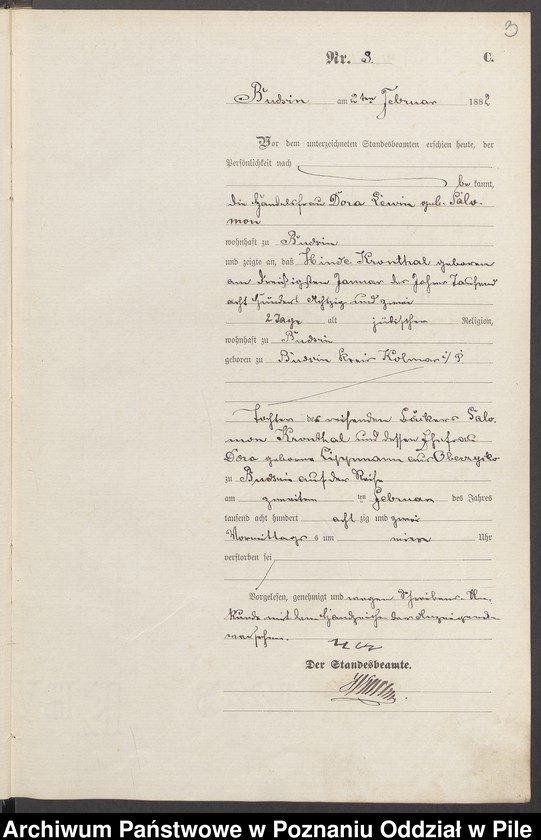 3
Nr. 3. C.
Budsin am 2ten Februar 1882
Vor dem unterzeichneten Standesbeamten erschien heute, der
Persönlichkeit nach
be kannt,
die Handelsfrau Dora Lewin geb. Salo-
mon
wohnhaft zu Budsin
und zeigte an, daß Hinde Kronthal geboren
am dreißigsten Januar des Jahres Tausend
acht Hundert Achtzig und zwei
2 Tage alt jüdischer Religion,
wohnhaft zu Budsin
geboren zu Budsin Kreis Kolmar i/P.
Tochter des reisenden Bäckers Salo-
mon Kronthal und dessen Ehefrau
Dora geborne Lippmann aus Obersitzko
zu Budsin auf der Reise
am zweiten ten Februar des Jahres
tausend acht hundert acht zig und zwei
Vormittags s um Uhr
verstorben sei
Vorgelesen, genehmigt und wegen Schreibens Un-
kunde mit dem Handzeichen der Anzeigenden
versehen.
Der Standesbeamte.
Archiwum Państwowe w Poznaniu Oddział w Pile